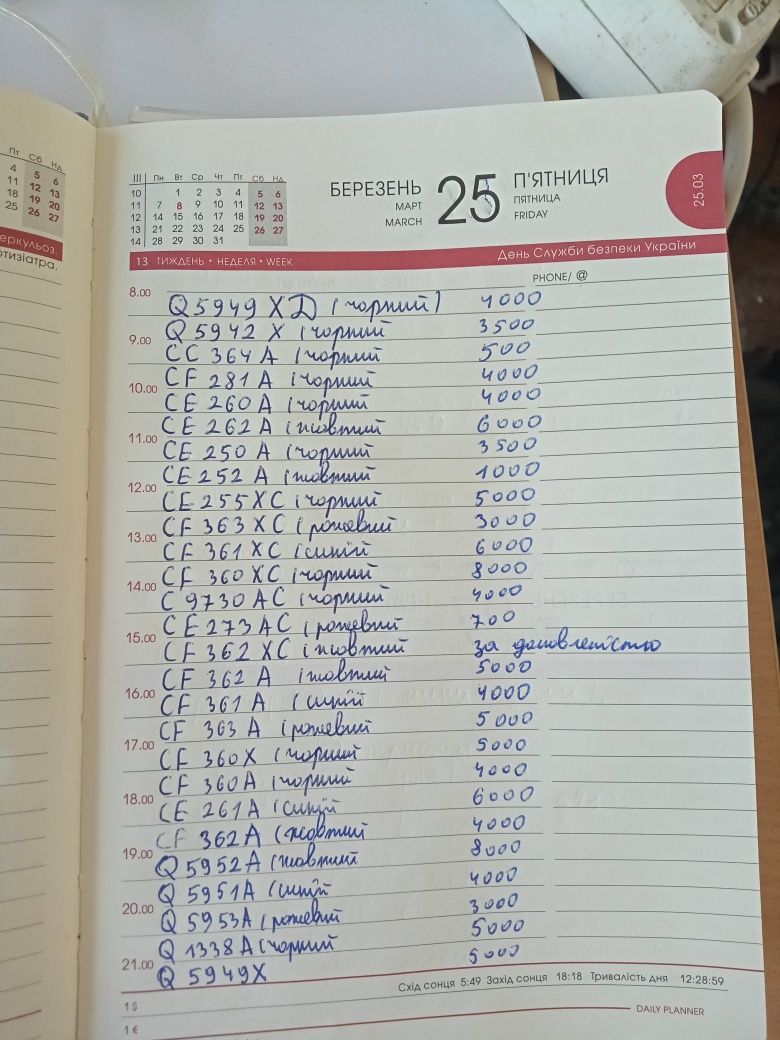 Пт Сб Нд
4 5 6
11 12 13
18 19 20
25 26 27
еркульоз.
отизіатра.
III Пн Вт Ср Чт Пт Сб Нд
10 1 2 3 4 5 6
11 7 8 9 10 11 12 13
12 14 15 16 17 18 19 20
13 21 22 23 24 25 26 27
14 28 29 30 31
БЕРЕЗЕНЬ
МАРТ
MARCH
25
П'ЯТНИЦЯ
ПЯТНИЦА
FRIDAY
25.03
13 ТИЖДЕНЬ • НЕДЕЛЯ • WEEK
День Служби безпеки України
PHONE/ @
8.00 Q 5949 XD (чорний) 4000
Q 5942 X (чорний 3500
9.00 CC 364 A (чорний 500
CF 281 A (чорний 4000
10.00 CE 260 A (чорний 4000
CE 262 A (жовтий 6000
11.00 CE 250 A (чорний 3500
CE 252 A (жовтий 1000
12.00 CE 255 XC (чорний 5000
CF 363 XC (рожевий 3000
13.00 CF 361 XC (синій 6000
CF 360 XC (чорний 8000
14.00 C 9730 AC (чорний 4000
CE 273 AC (рожевий 700
15.00 CF 362 XC (жовтий за домовленістю
CF 362 A (жовтий 5000
16.00 CF 361 A (синій 4000
CF 363 A (рожевий 5000
17.00 CF 360X (чорний 5000
CF 360A (чорний 4000
18.00 CE 261A (синій 6000
CF 362A (жовтий 4000
19.00 Q 5952A (жовтий 8000
Q 5951A (синій 4000
20.00 Q 5953A (рожевий 3000
Q 1338 A (чорний 5000
21.00 Q 5949X 5000
Схід сонця 5:49 Захід сонця 18:18 Тривалість дня 12:28:59
1 $
DAILY PLANNER
1 €